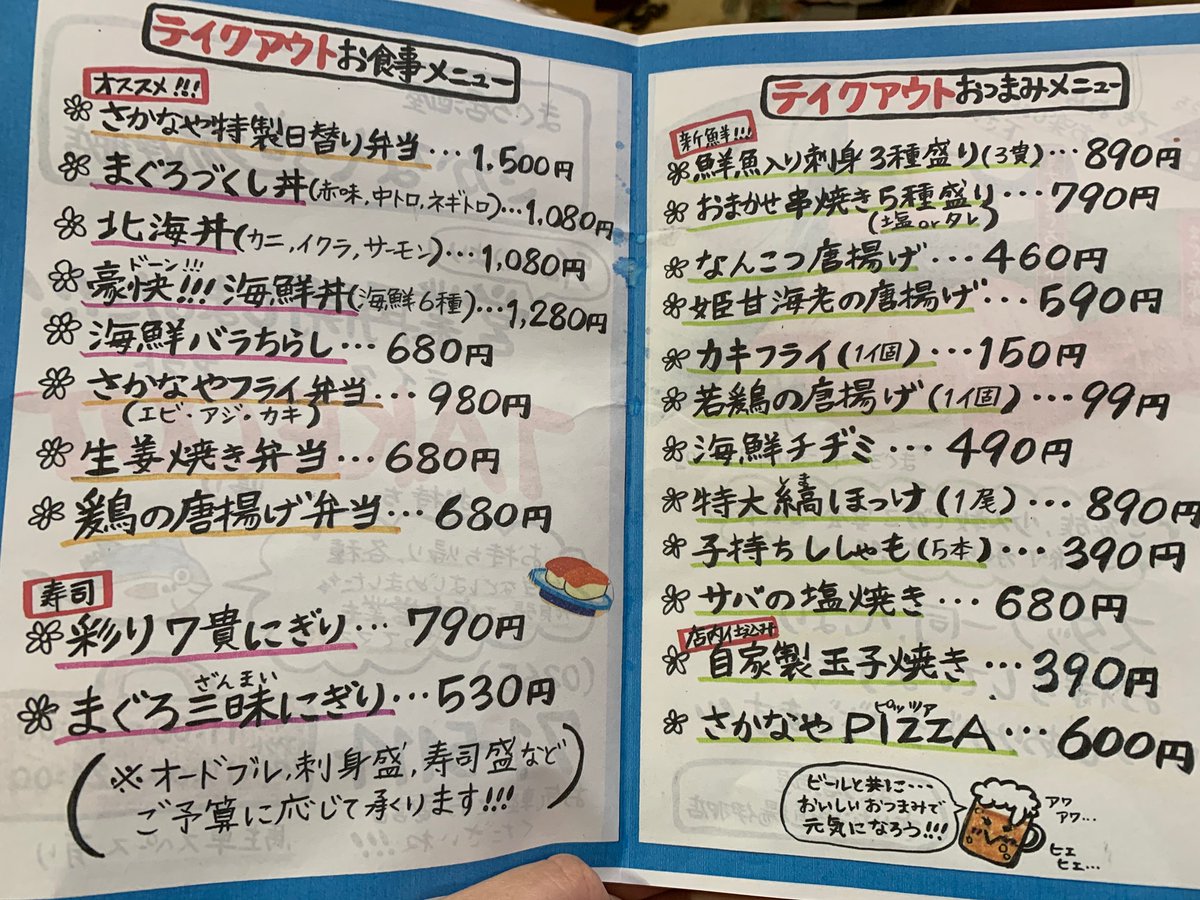 テイクアウトお食事メニュー
オススメ!!!
さかなや特製日替り弁当…1,500円
まぐろづくし丼(赤味,中トロ,ネギトロ)…1,080円
北海丼(カニ,イクラ,サーモン)…1,080円
ドーン!!!
豪快!!!海鮮丼(海鮮6種)…1,280円
海鮮バラちらし…680円
さかなやフライ弁当…980円
(エビ・アジ・カキ)
生姜焼き弁当…680円
鶏の唐揚げ弁当…680円
寿司
彩り7貴にぎり…790円
ざんまい
まぐろ三昧にぎり…530円
(※オードブル,刺身盛,寿司盛など
ご予算に応じて承ります!!!)
テイクアウトおつまみメニュー
新鮮!!!
鮮魚入り刺身3種盛り(3貴)…890円
おまかせ串焼き5種盛り…790円
(塩orタレ)
なんこつ唐揚げ…460円
姫甘海老の唐揚げ…590円
カキフライ(1個)…150円
若鶏の唐揚げ(1個)…99円
海鮮チヂミ…490円
しま
特大縞ほっけ(1尾)…890円
子持ちししゃも(5本)…390円
サバの塩焼き…680円
店内仕込み!!
自家製玉子焼き…390円
ピッツァ
さかなやPIZZA…600円
ビールと共に…
おいしいおつまみで
元気になろう!!!
アワ
アワ…
ヒエ
ヒエ…